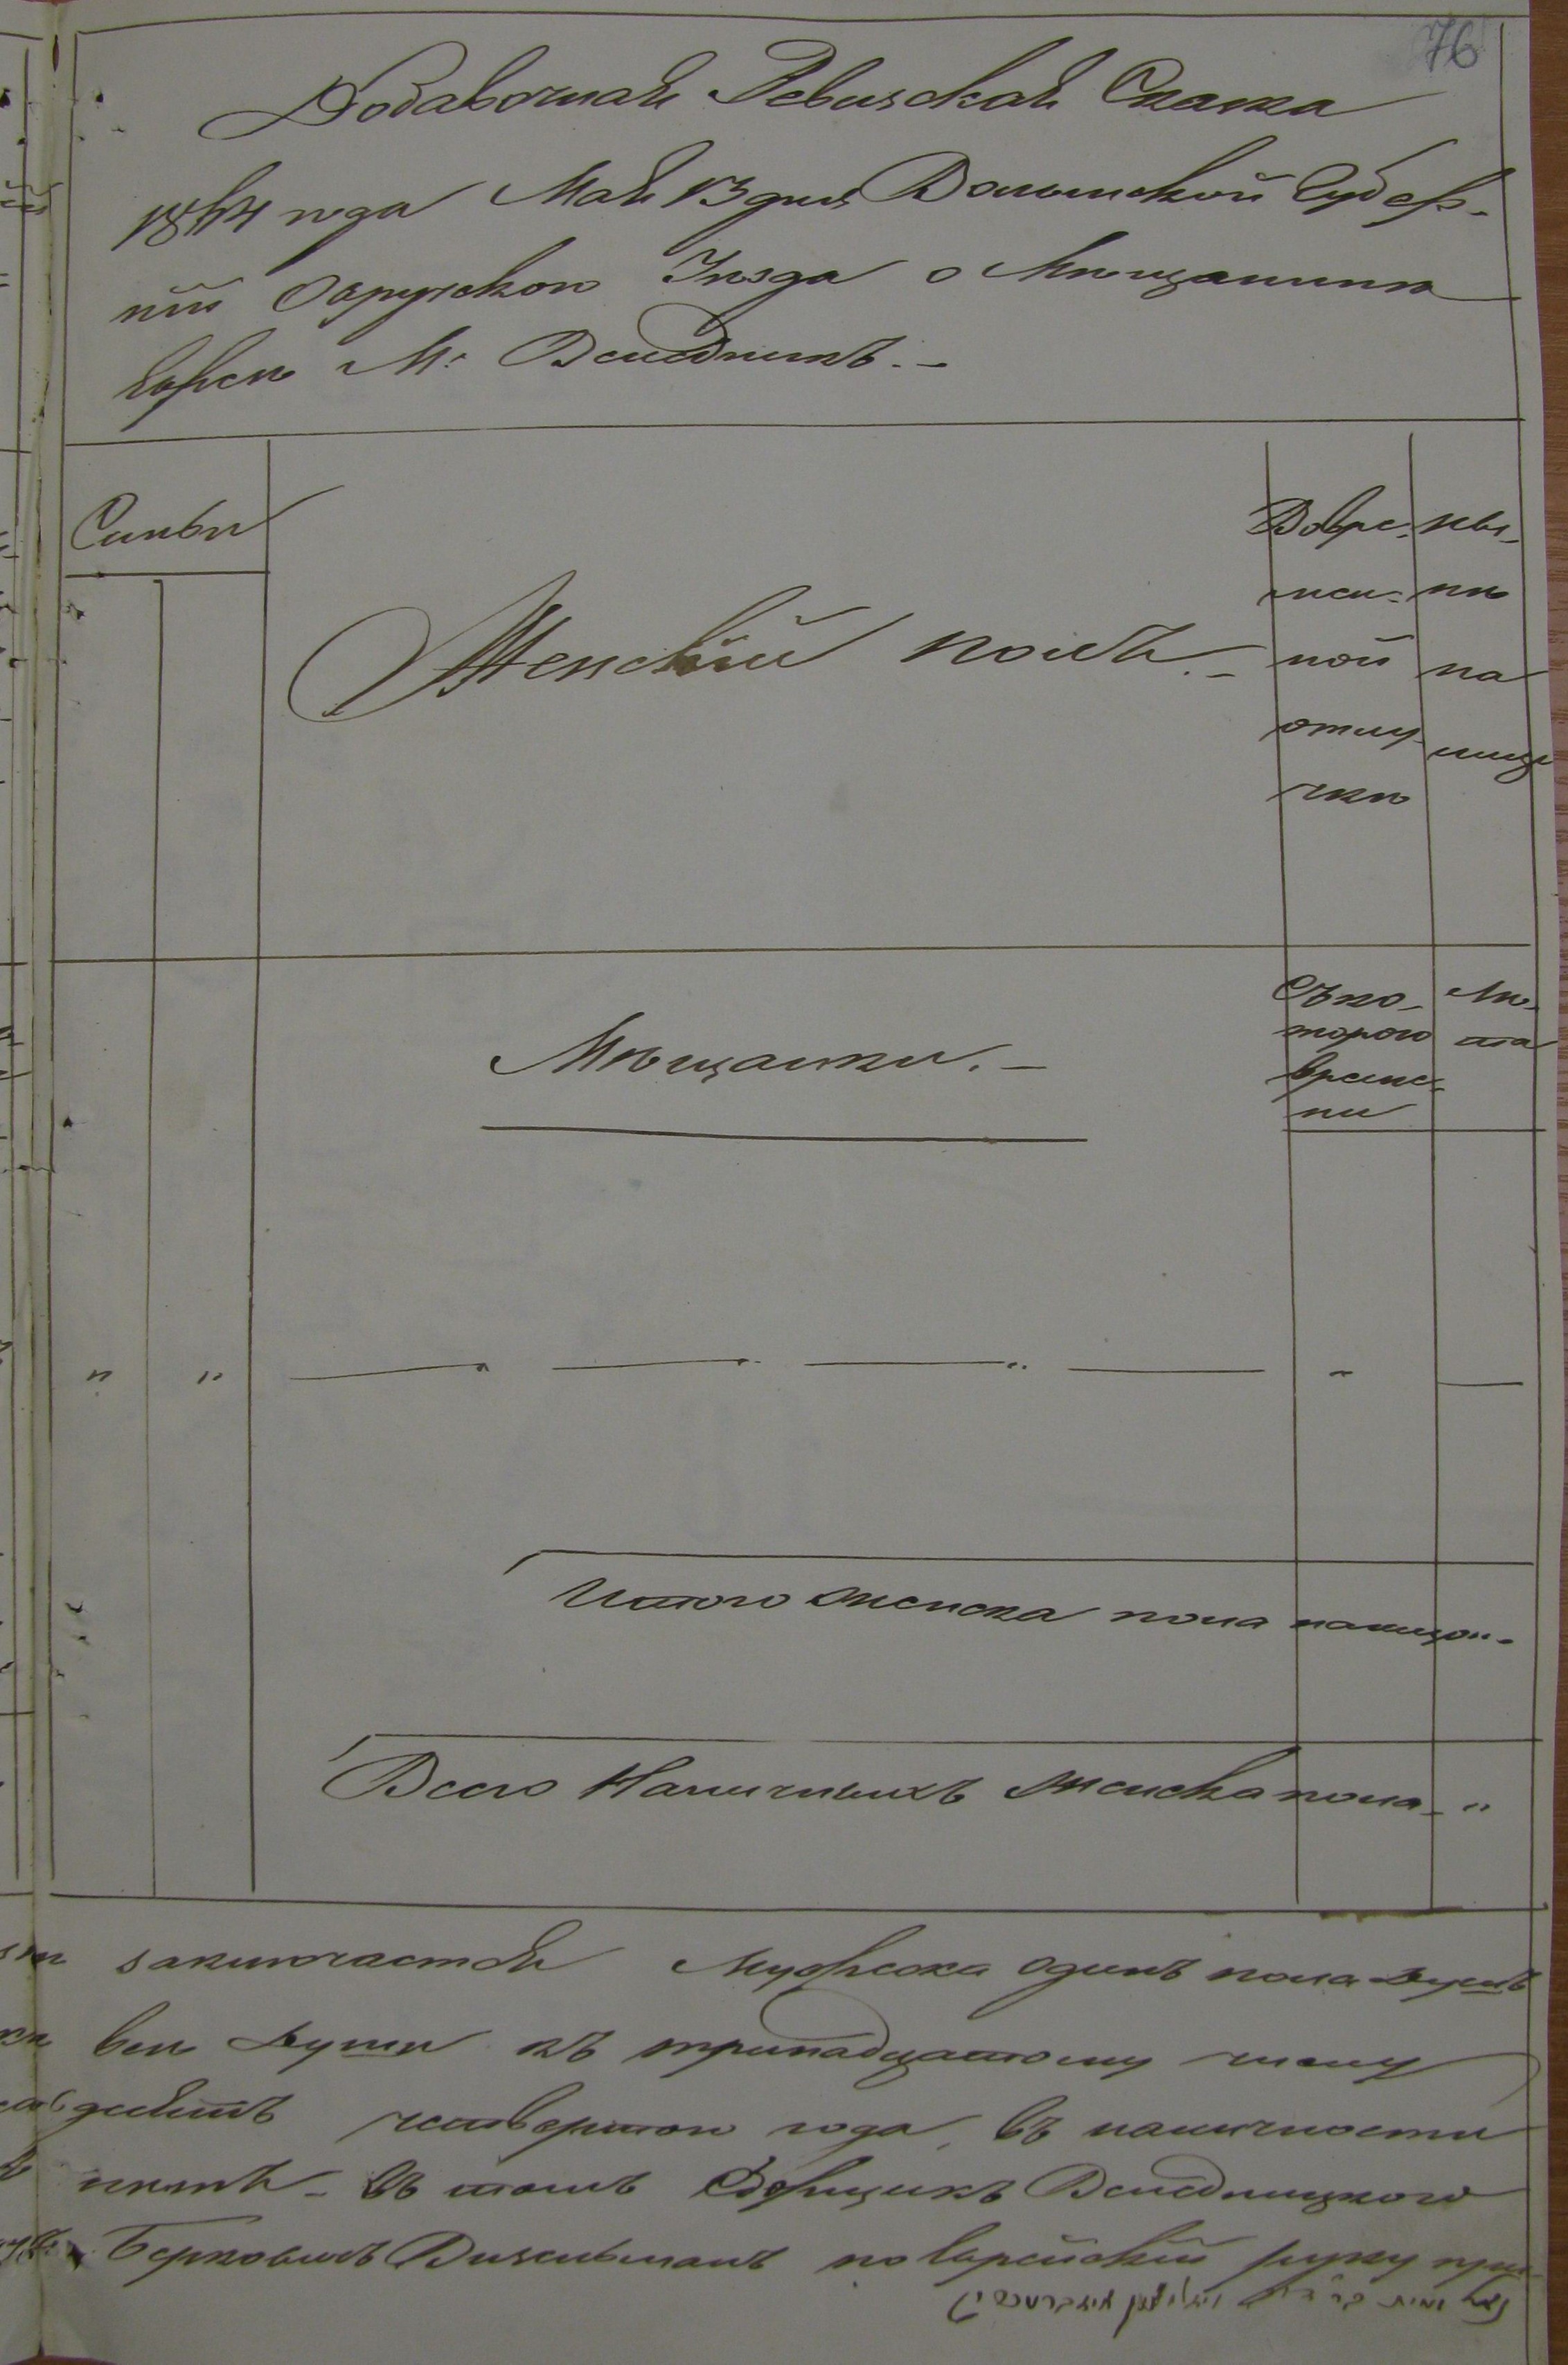 76
Добавочная Ревизская Сказка
1864 года Мая 13 дня Волынской Губер-
нии Овручского Уѣзда о Мѣщанинѣ
Евреѣ М. Веледникъ.-
Семьи
Женскій полъ.-
Во вре-
мен-
ной
отлу-
чкѣ
Ны-
нѣ
на
лице
Мѣщанки.-
Съ ко-
тораго
време-
ни
Лѣ-
та
" "
Итого женска пола налицо "-
Всего Наличныхъ женска пола - "
заключается Мужеска одинъ пола душъ
все души къ тринадцатому числу
десятъ четвертого года, въ наличности
нѣтъ - въ томъ Веледницкого
Берковичъ по Еврейскій руку при-